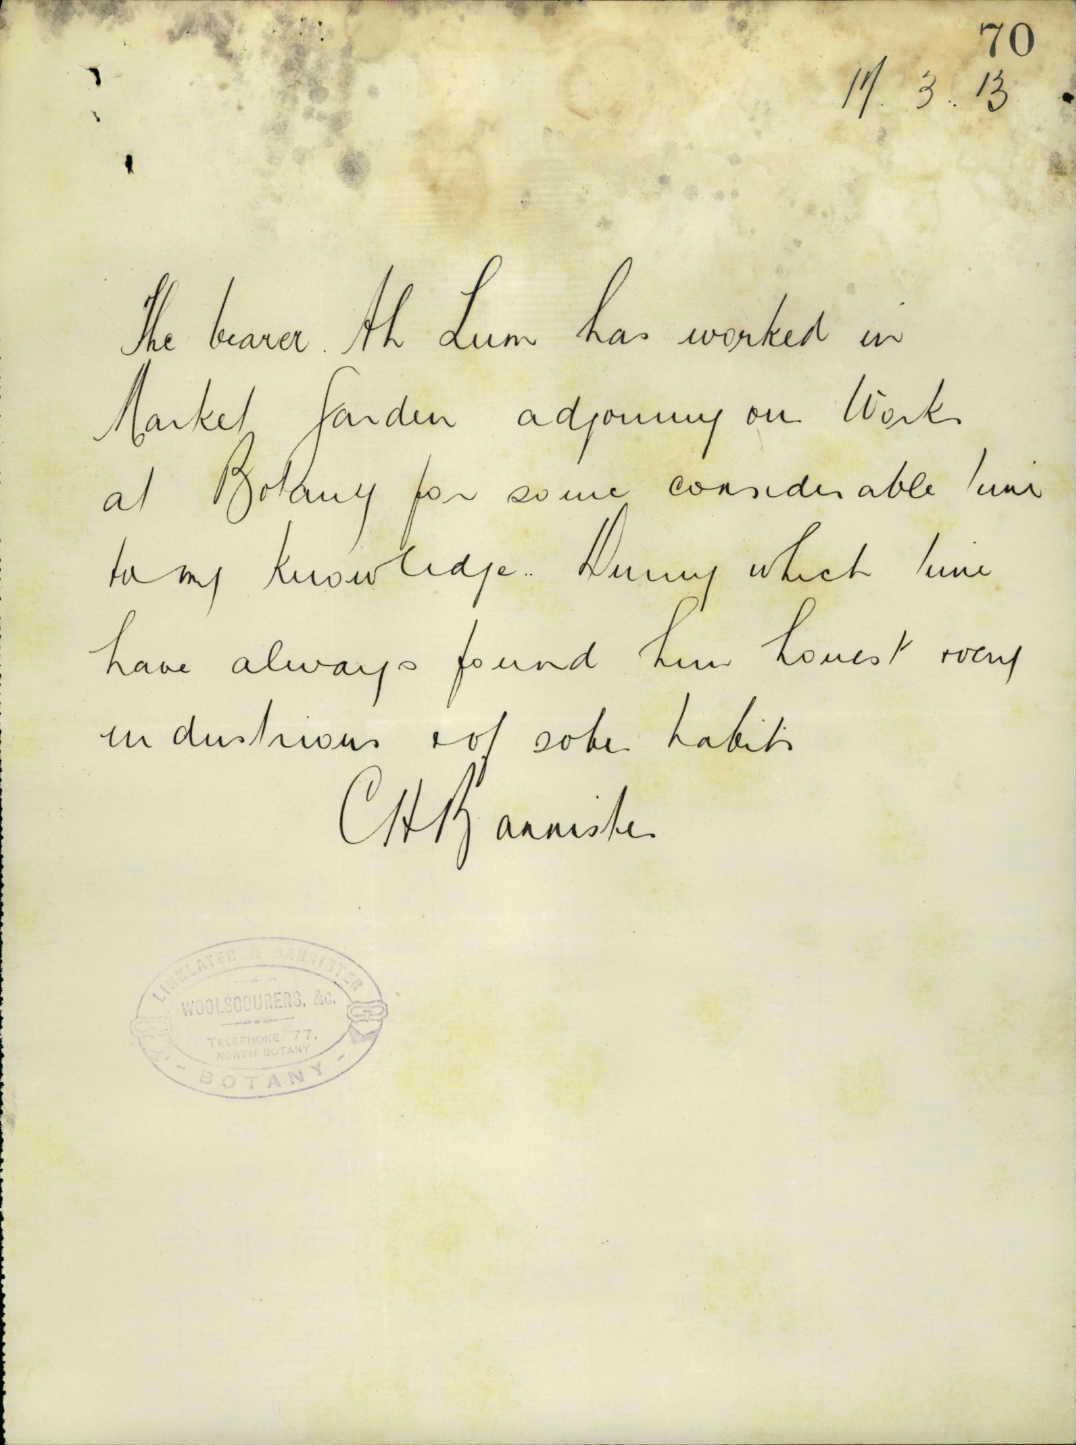 70
17. 3. 13
The bearer. Ah Lum has worked in
Market Garden adjoining our Works
at Botany for some considerable time
to my knowledge. During which time
have always found him honest very
industrious & of sober habits
C H Bannister
LINKLATER & BANNISTER
WOOLSCOURERS, &c.
TELEPHONE 77,
NORTH BOTANY
- BOTANY -